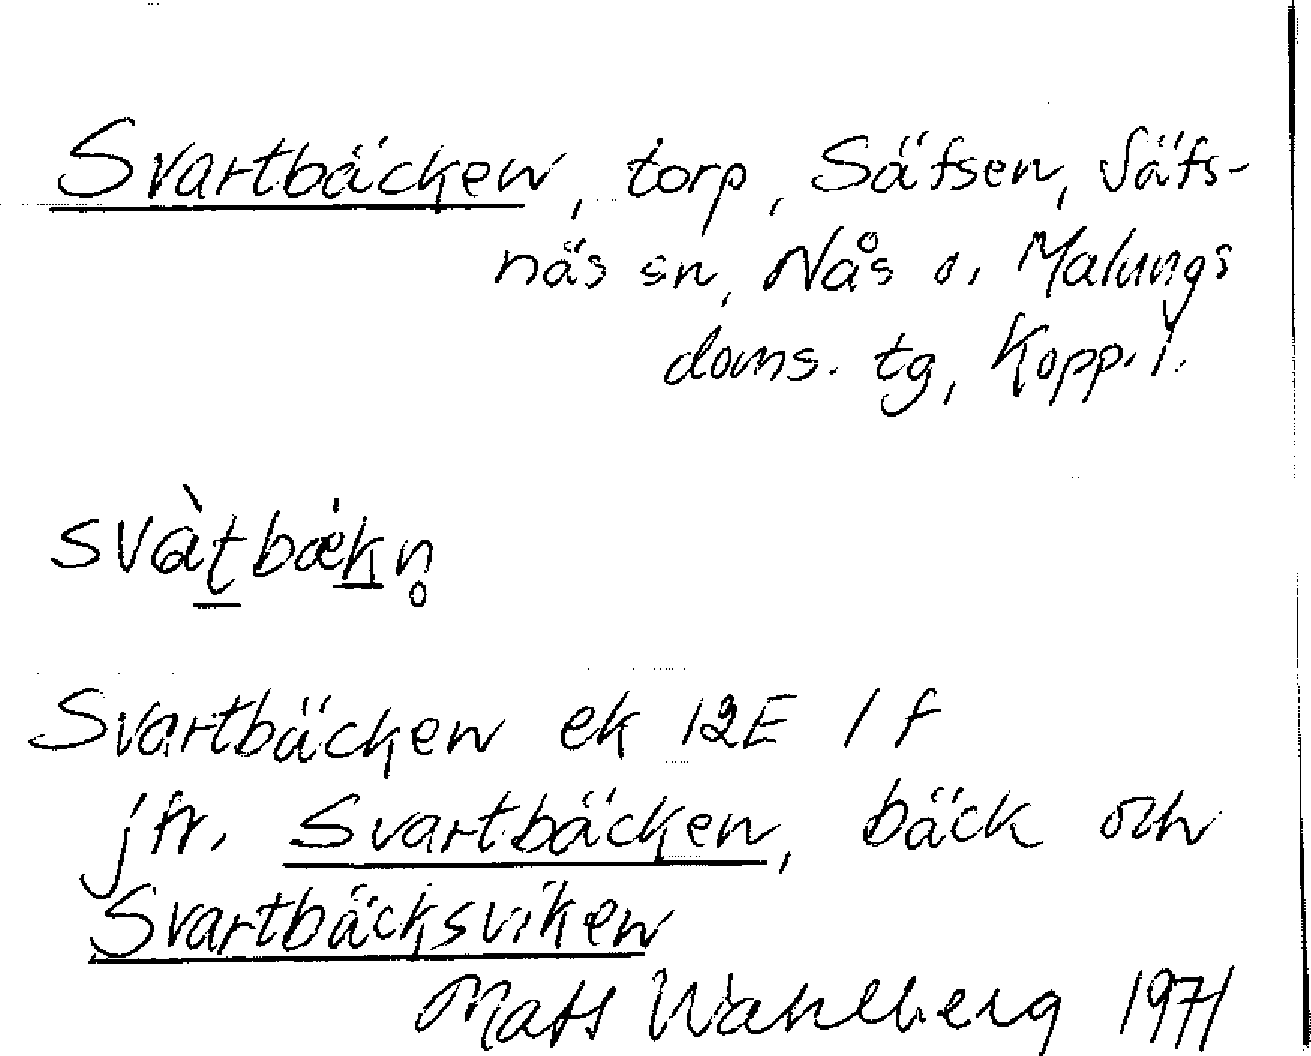 Svartbäcken, torp, Säfsen, Säfs-
näs sn, Nås o. Malungs
doms. tg, Kopp. l.
svàt̠bæ̀k̠n̥
Svartbäcken ek 12E 1f
jfr. Svartbäcken, bäck och
Svartbäcksviken
Mats Wahlberg 1971